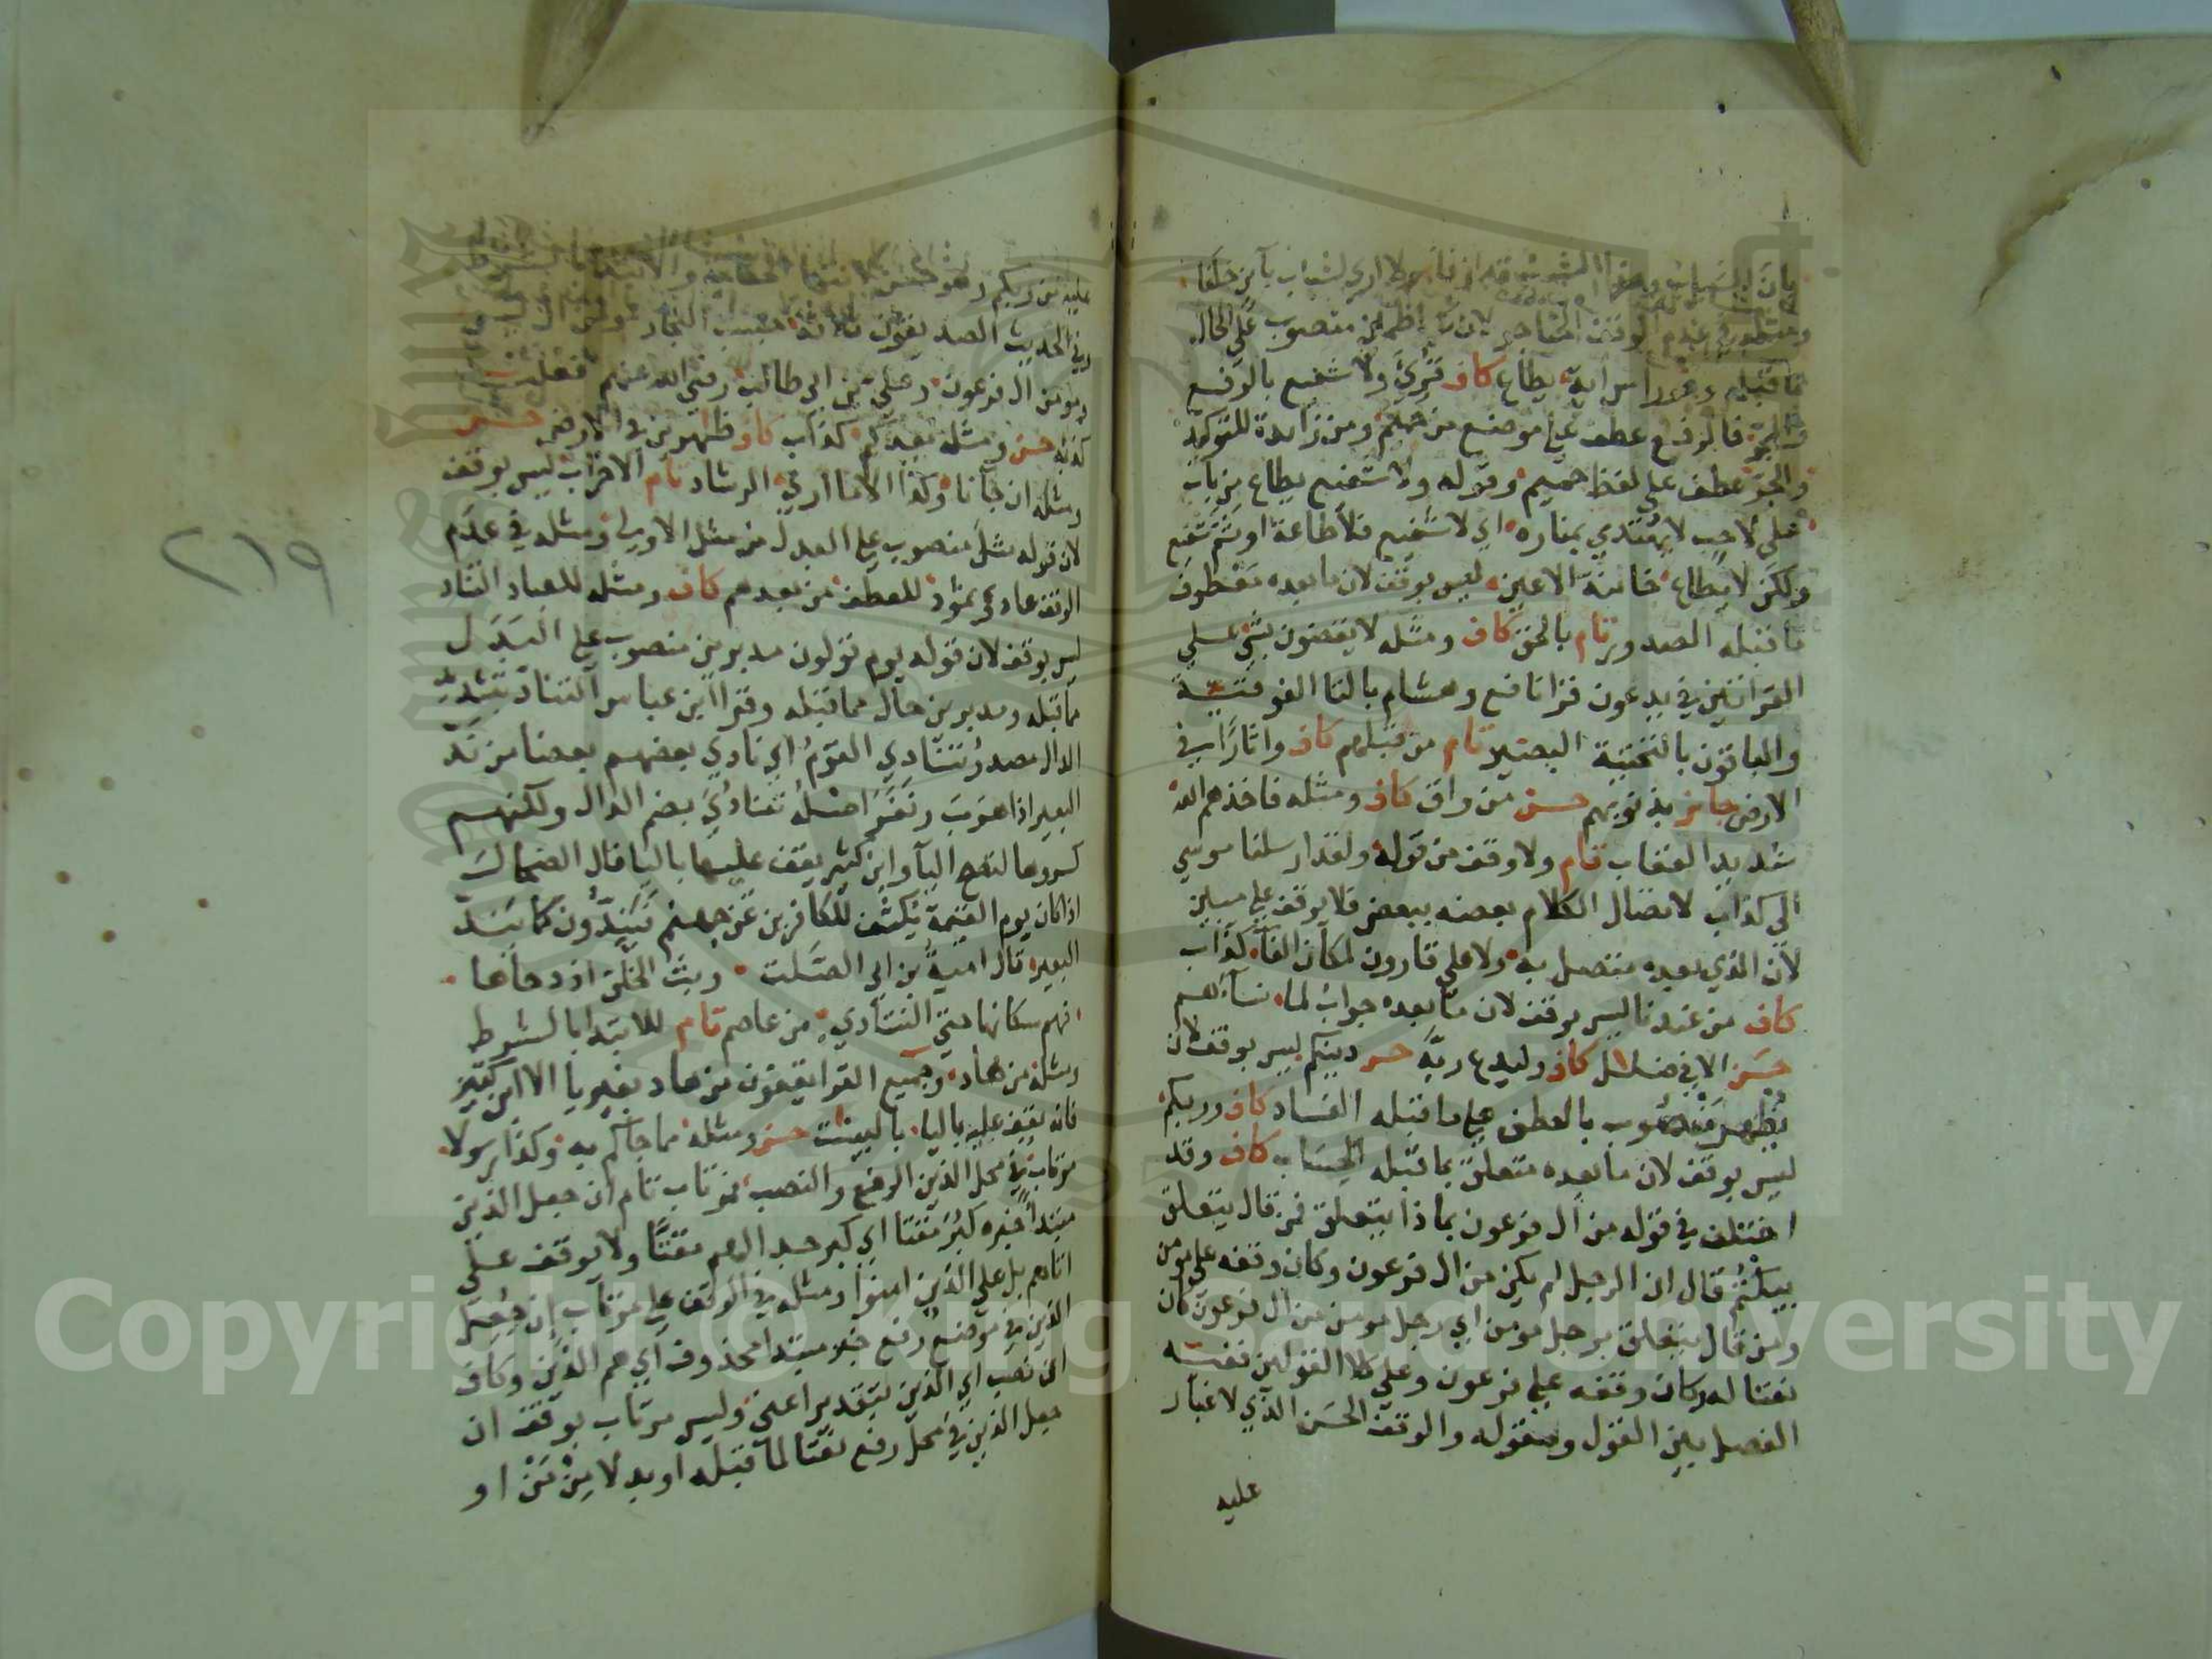 بان الشباب
الوقف على الحناجر لان كاظمين منصوب على الحال
مما قبله وهو راس اية يطاع كاف قرئ ولا شفيع بالرفع
والجر فالرفع عطف على موضع من حميم ومن زايدة للتوكيد
والجر عطف على لفظ حميم وقوله ولا شفيع يطاع من باب
على لاحب لا يهتدي بمناره اي لا شفيع فلا طاعة او ثم شفيع
ولكن لا يطاع خاينة الاعين ليس بوقف لان ما بعده معطوف
ما قبله الصدور تام بالحق كاف ومثله لا يقضون بشئ على
القراتين في يدعون قرا نافع وهشام بالتا الفوقية
والباقون بالتحتية البصير تام من قبلهم كاف واثارا في
الارض جايز بذنوبهم حسن من واق كاف ومثله فاخذهم الله
شديد العقاب تام ولا وقف من قوله ولقد ارسلنا موسى
الى كذاب لاتصال الكلام بعضه ببعض فلا يوقف على مبين
لان الذي بعده متصل به ولا على قارون لمكان الفآ كذاب
كاف من عندنا ليس بوقف لان ما بعده جواب لما نسآءهم
حسن الا في ضلال كاف وليدع ربه حسن دينكم ليس بوقف لان
يظهر منصوب بالعطف على ما قبله الفساد كاف وربكم
ليس بوقف لان ما بعده متعلق بما قبله الحساب كاف وقد
اختلف في قوله من ال فرعون بماذا يتعلق فمن قال يتعلق
بيكتم قال ان الرجل لم يكن من ال فرعون وكان وقفه على مومن
ومن قال يتعلق برجل مومن اي رجل مومن من ال فرعون كان
نعتا له وكان وقفه على فرعون وعلى كلا القولين ففيه
الفصل بين القول ومقوله والوقف الحسن الذي لا غبار
عليه
عليه من ربكم وهو حسن لانتهاء الحكاية والابتداء بالشرط
وفي الحديث الصديقون ثلاثة حبيب النجار
ومومن ال فرعون وعلي بن ابي طالب رضي الله عنهم فعليه
كذبه حسن ومثله يعدكم كذاب كاف ظاهرين في الارض حسن
ومثله ان جآنا وكذا الا ما ارى الرشاد تام الاحزاب ليس بوقف
لان قوله مثل منصوب على البدل من مثل الاول ومثله في عدم
الوقف عاد وثمود للعطف من بعدهم كاف ومثله للعباد التناد
ليس بوقف لان قوله يوم تولون مدبرين منصوب على البدل
مما قبله ومدبرين حال مما قبله وقرا ابن عباس التناد بتشديد
الدال مصدر تنادي القوم اي نادي بعضهم بعضا من ند
البعير اذا هرب ونفر اصله تنادد بضم الدال ولكنهم
كسروها لتصح اليآ وابن كثير يقف عليها باليا قال الضحاك
اذا كان يوم القيمة يكشف للكافرين عن جهنم فيندون كما يند
البعير قال امية بن ابي الصلت وبث الخلق اذ دحاها
فهم سكانها حتى التنادي من عاصم تام للابتدا بالشرط
ومثله من هاد وجميع القرا يقفون من هاد بغير يا الا ابن كثير
فانه يقف عليه باليا بالبينت حسن ومثله مما جآكم به وكذا رسولا
مرتاب في محل الذين الرفع والنصب فمرتاب تام ان جعل الذين
مبتدأ خبره كبر مقتا اي كبر جدالهم مقتا ولا يوقف على
اتاهم بل على الذين امنوا ومثله في الوقف على مرتاب ان جعل
الذين في موضع رفع خبر مبتدا محذوف اي هم الذين وكاف
ان نصب اي الذين بتقدير اعني وليس مرتاب بوقف ان
جعل الذين في محل رفع نعتا لما قبله او بدلا من من او
٢١٩
Copyright © King Saud University
1957